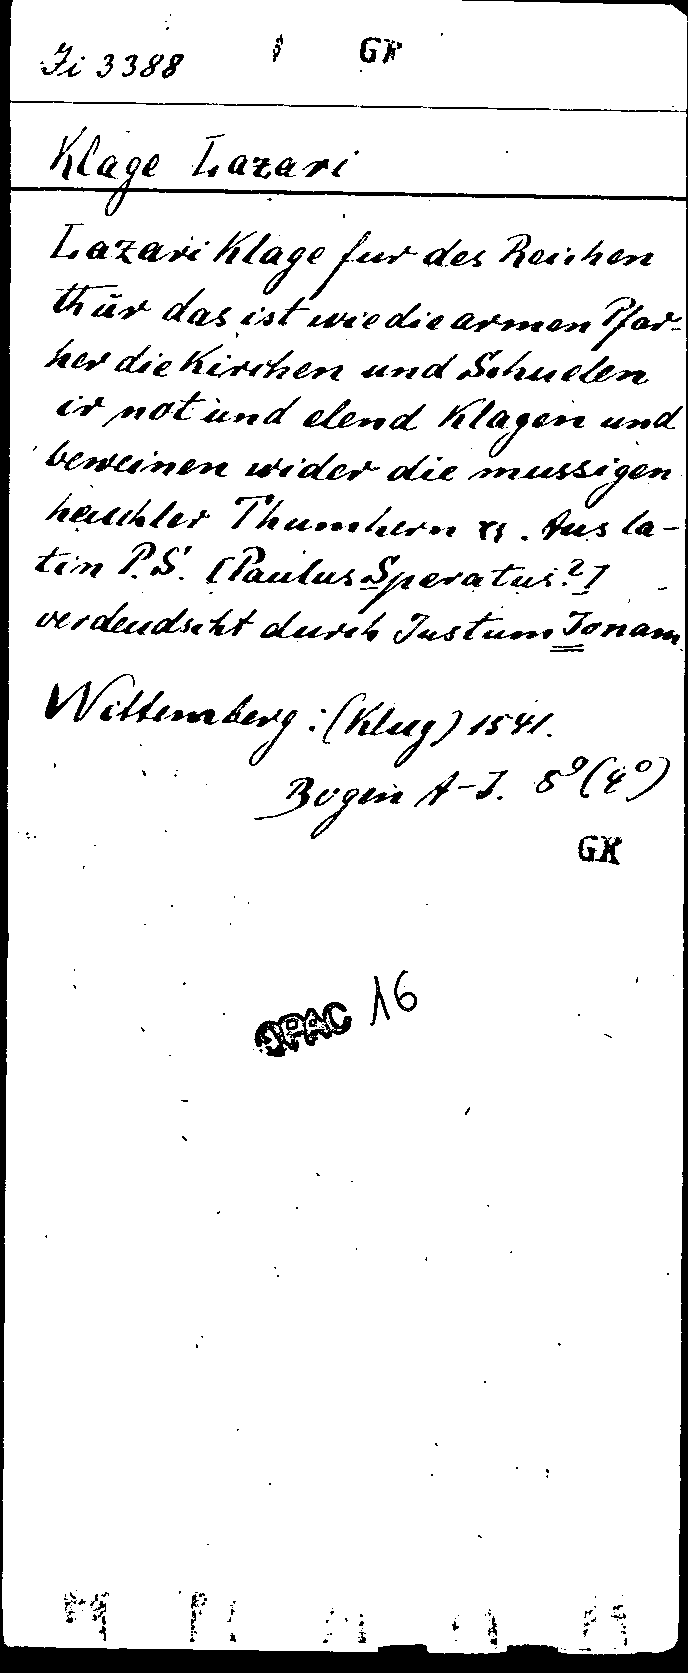 Ji 3388 GK
Klage Lazari
Lazari Klage fur des Reichen
thür das ist wie die armen Pfar-
her die Kirchen und Schuelen
ir not und elend klagen und
beweinen wider die mussigen
heuchler Thumhern rc. Aus la-
tin P. S. [Paulus Speratus?]
verdeudscht durch Justum Jonam
Wittemberg: (Klug) 1541.
Bogen A-J. 8° (4°)
GK
OPAC 16